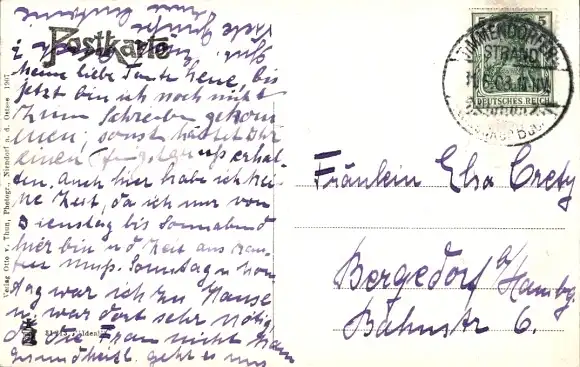 Postkarte
Meine liebe Tante Lene, bis
jetzt bin ich noch nicht
zum Schreiben gekom
men, sonst hättet Ihr
einen Pfingstgruß erhal
ten. Auch hier habe ich kei
ne Zeit, da ich nur von
Dienstag bis Sonnabend
hier bin und Zeit aus
muß. Sonntag u Mon
tag war ich zu Hause
u. war dort sehr nötig
da die Frau nicht kam
Gesundheitl. geht es uns
5 5
TIMMENDORFER
STRAND
DEUTSCHES REICH
Fräulein Elsa Crety
Bergedorf b/Hambg
Bahnstr 6.
Verlag Otto v. Thun, Photogr., Niendorf a. d. Ostsee 1907